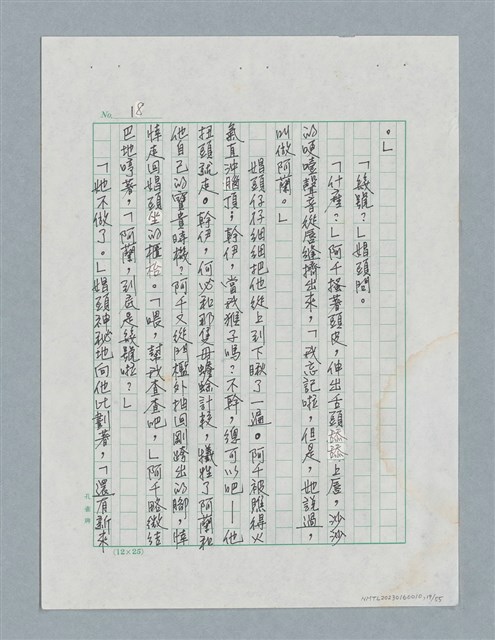 No. 18
。」
「幾號？」娼頭問。
「什麼？」阿千搔著頭皮，伸出舌頭舔舔上唇，沙沙
的哽噎聲音從唇縫擠出來，「我忘記啦，但是，她說過，
叫做阿蘭。」
娼頭仔仔細細把他從上到下瞅了一遍。阿千被瞧得火
氣直沖腦頂：幹伊，當我猴子嗎？不幹，總可以吧——他
扭頭就走。幹伊，何必和那隻母蟾蜍計較，犧牲了阿蘭和
他自己的寶貴時機？阿千又從門檻外抽回剛跨出的腳，悻
悻走回娼頭坐的櫃枱。「喂，幫我查查吧，」阿千略微結
巴地哼著，「阿蘭，到底是幾號啦？」
「她不做了。」娼頭神秘地向他比劃著，「還有新來
(12×25)
NMTL20230160010,19/55